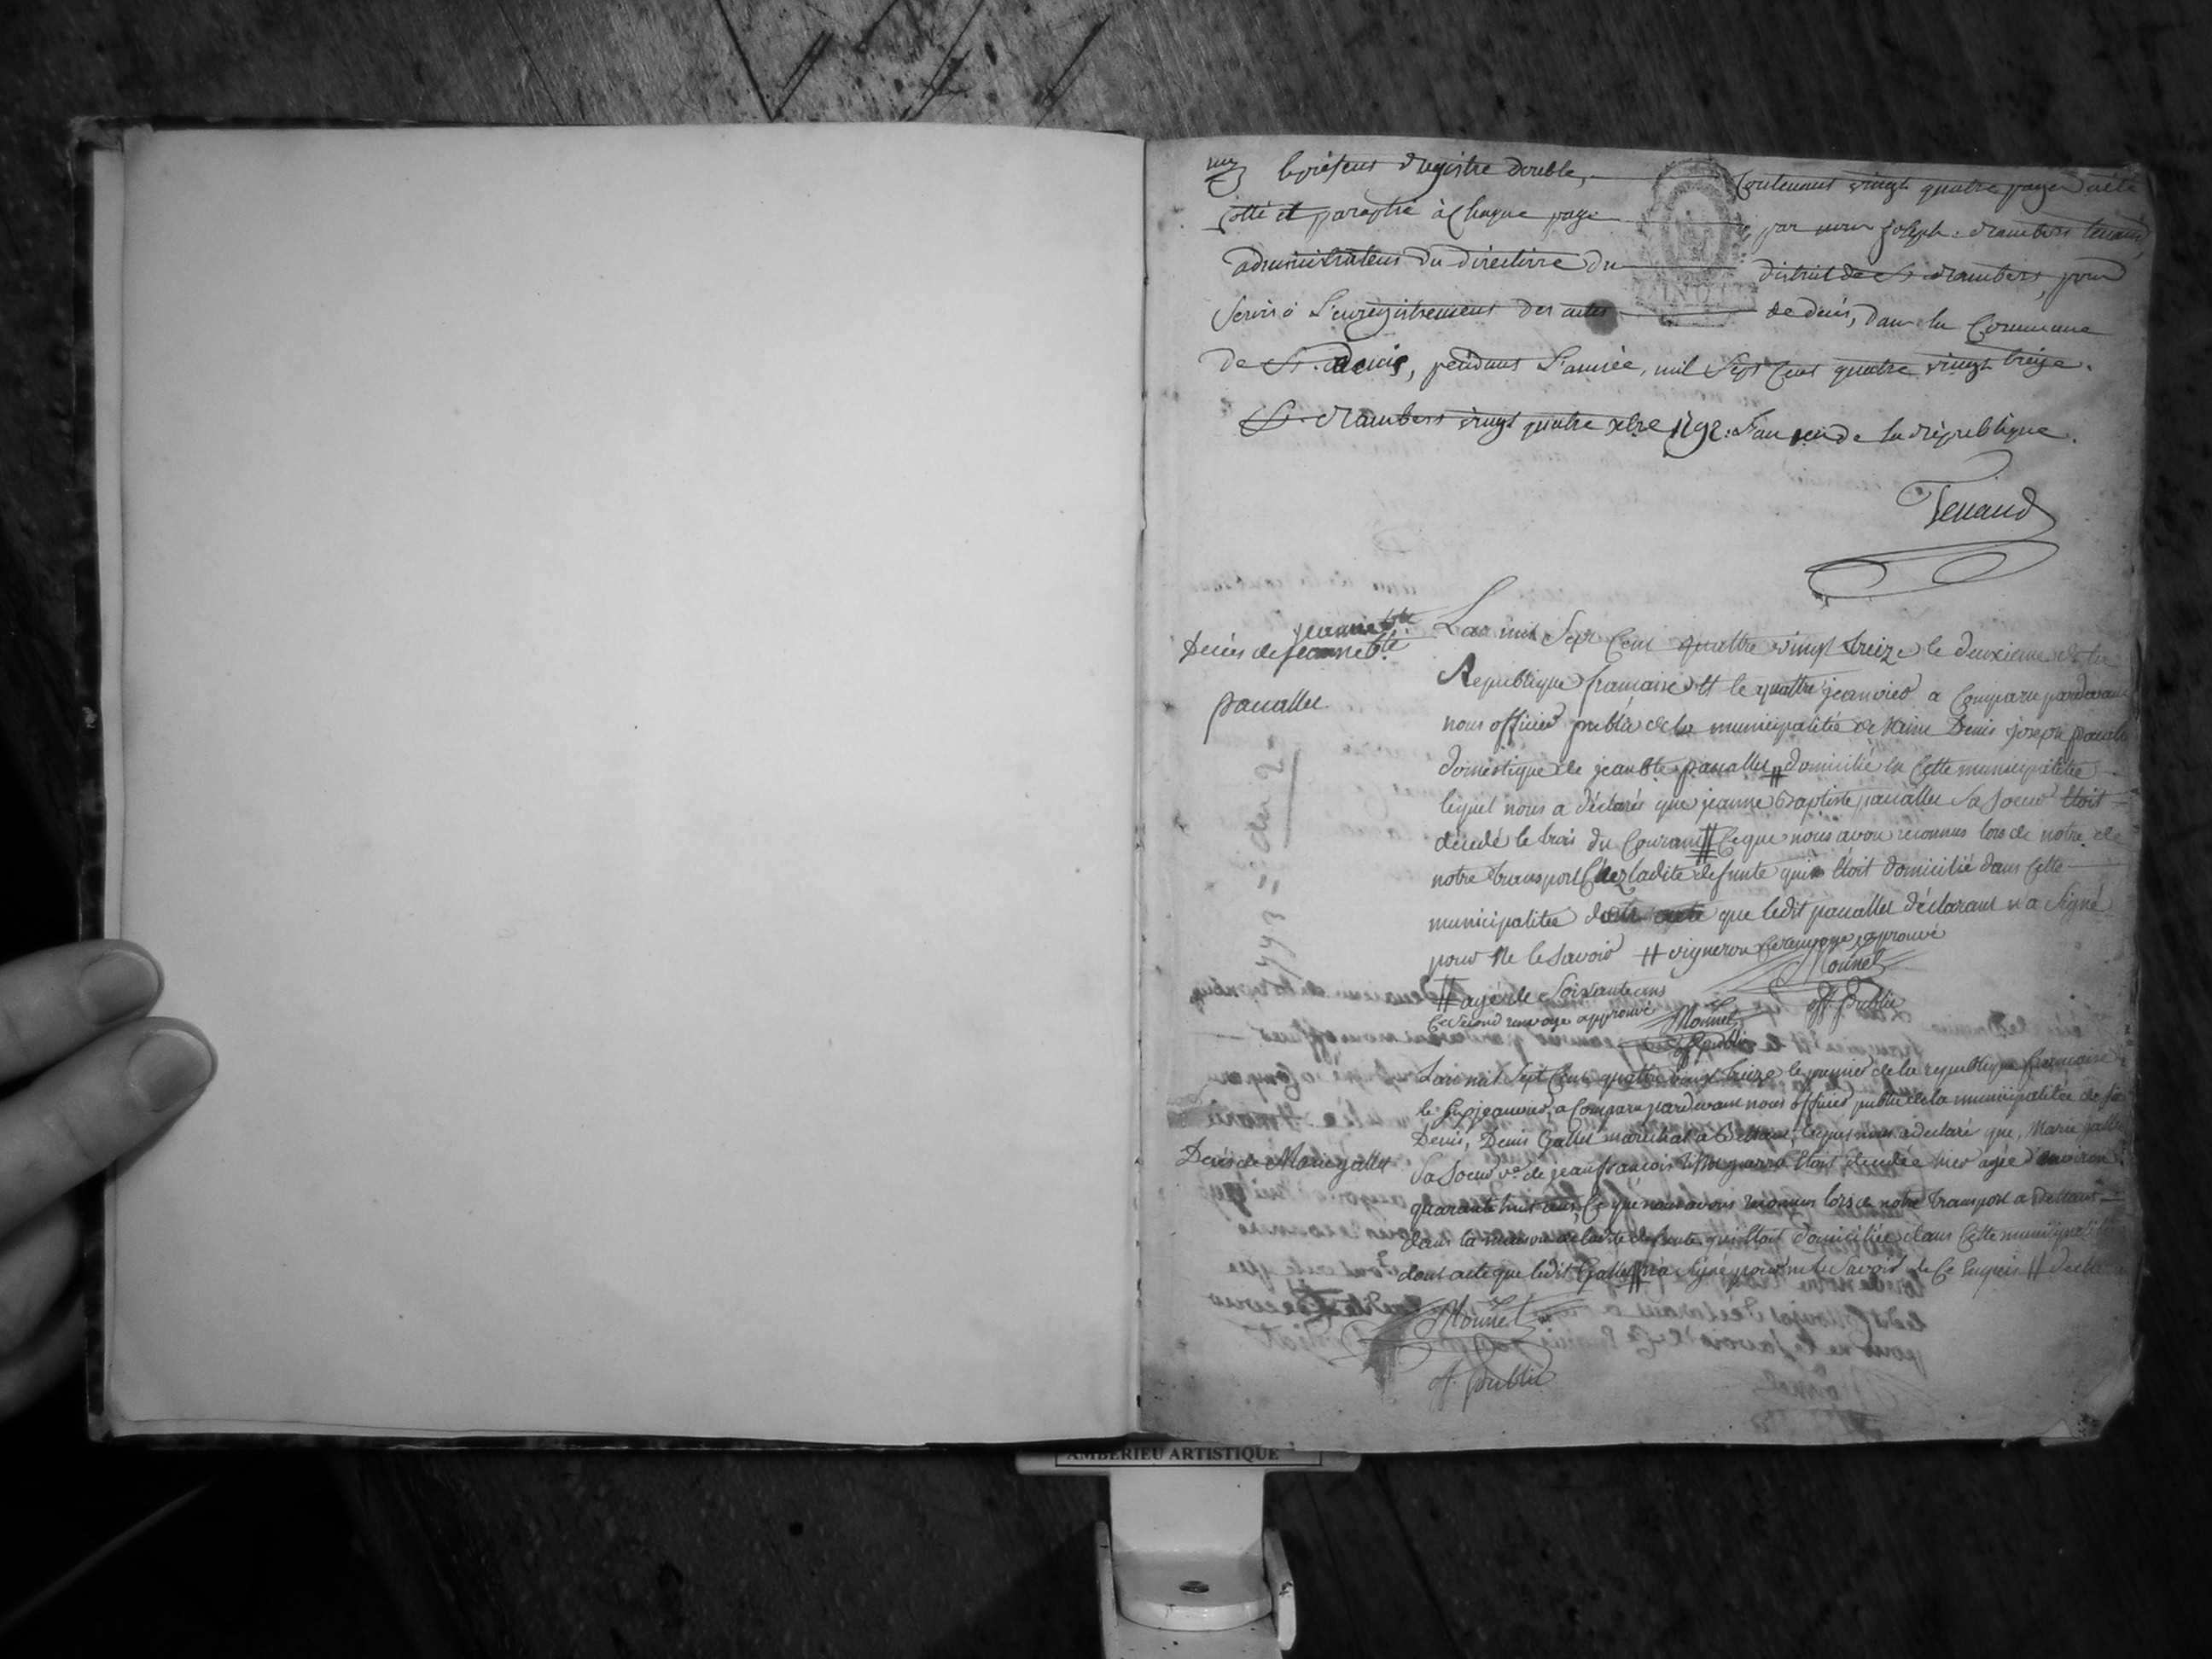 le présent Registre double, contenant vingt quatre pages a été
cotté et paraphé à chaque page par nous joseph Rambert tenand
administrateur du directoire du district de St. Rambert, pour
servir à l'enregistrement des actes de décès, dans la Commune
de St. Denis, pendant l'année, mil Sept Cent quatre vingt treize.
St. Rambert vingt quatre xbre 1792. l'an 1er de la République.
Tenand
jeanne bte
Décès de jeanne bte
pauallet
Lan mil Sept Cent quattre vingt treize le deuxieme de la
Republique francaise et le quattre jeanvier a Comparu pardevant
nous officier public de la municipalitée de Denis joseph
domestique de jean bte pauallet # domicilié en Cette municipalitée
lequel nous a déclaré que jeanne Baptiste pauallet Sa Soeur Etoit
décedé le trois du Courant # Ce que nous avon reconnus lors de notre de
notre transport Chez ladite defunte qui Etoit domicilié dans Cette
municipalitée dont acte que ledit pauallet déclarant n a Signé
pour Ne le Savoir # vigneron Ce renvoye aprouvé
Monnet
# agé de Soixante ans off. public
Ce Second renvoye approuvé Monnet
off public
Lan mil Sept Cent quattre vingt treize le premier de la republique francaise
le Six jeanvier, a Comparu pardevant nous officier public de la municipalitée de St
Denis, Denis Gallet marechal a lequel nous a declaré que, Marie gallet
Décès de Marie gallet
Sa Soeur ve de jean francois Etoit decedée hier agée d'environ
quarante huit ans, Ce que nous avons reconnus lors de notre transport a
dans la maison de ladite defunte qui Etoit domiciliée dans Cette municipalité
dont acte que ledit Gallet # n a Signé pour ne le Savoir de Ce Enquis # declarant
Monnet
off. public
AMBERIEU ARTISTIQUE